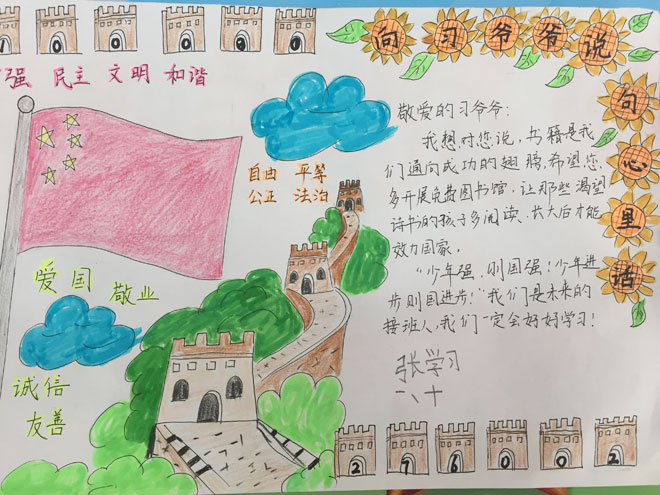 100080
向习爷爷说
句心里话
强 民主 文明 和谐
自由 平等
公正 法治
爱国 敬业
诚信
友善
敬爱的习爷爷:
我想对您说,书籍是我
们通向成功的翅膀,希望您
多开展免费图书馆,让那些渴望
诗书的孩子多阅读,长大后才能
效力国家。
“少年强,则国强!少年进
步则国进步!”我们是未来的
接班人,我们一定会好好学习!
张学习
八十
276002